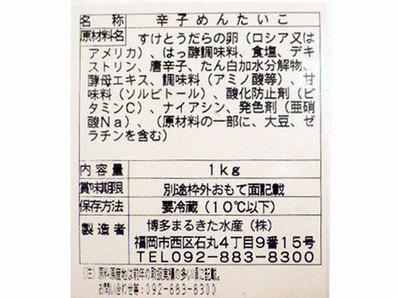 名称 辛子めんたいこ
原材料名 すけとうだらの卵（ロシア又は
アメリカ）、はっ酵調味料、食塩、デキ
ストリン、唐辛子、たん白加水分解物、
酵母エキス、調味料（アミノ酸等）、甘
味料（ソルビトール）、酸化防止剤（ビ
タミンC）、ナイアシン、発色剤（亜硝
酸Na）、（原材料の一部に、大豆、ゼ
ラチンを含む）
内容量 1kg
賞味期限 別途枠外おもて面記載
保存方法 要冷蔵（10℃以下）
製造者 博多まるきた水産（株）
福岡市西区石丸4丁目9番15号
TEL092-883-8300
（注）原料原産地は前年の取扱実績の多い順で記載。
お問い合わせ等：092-883-8300